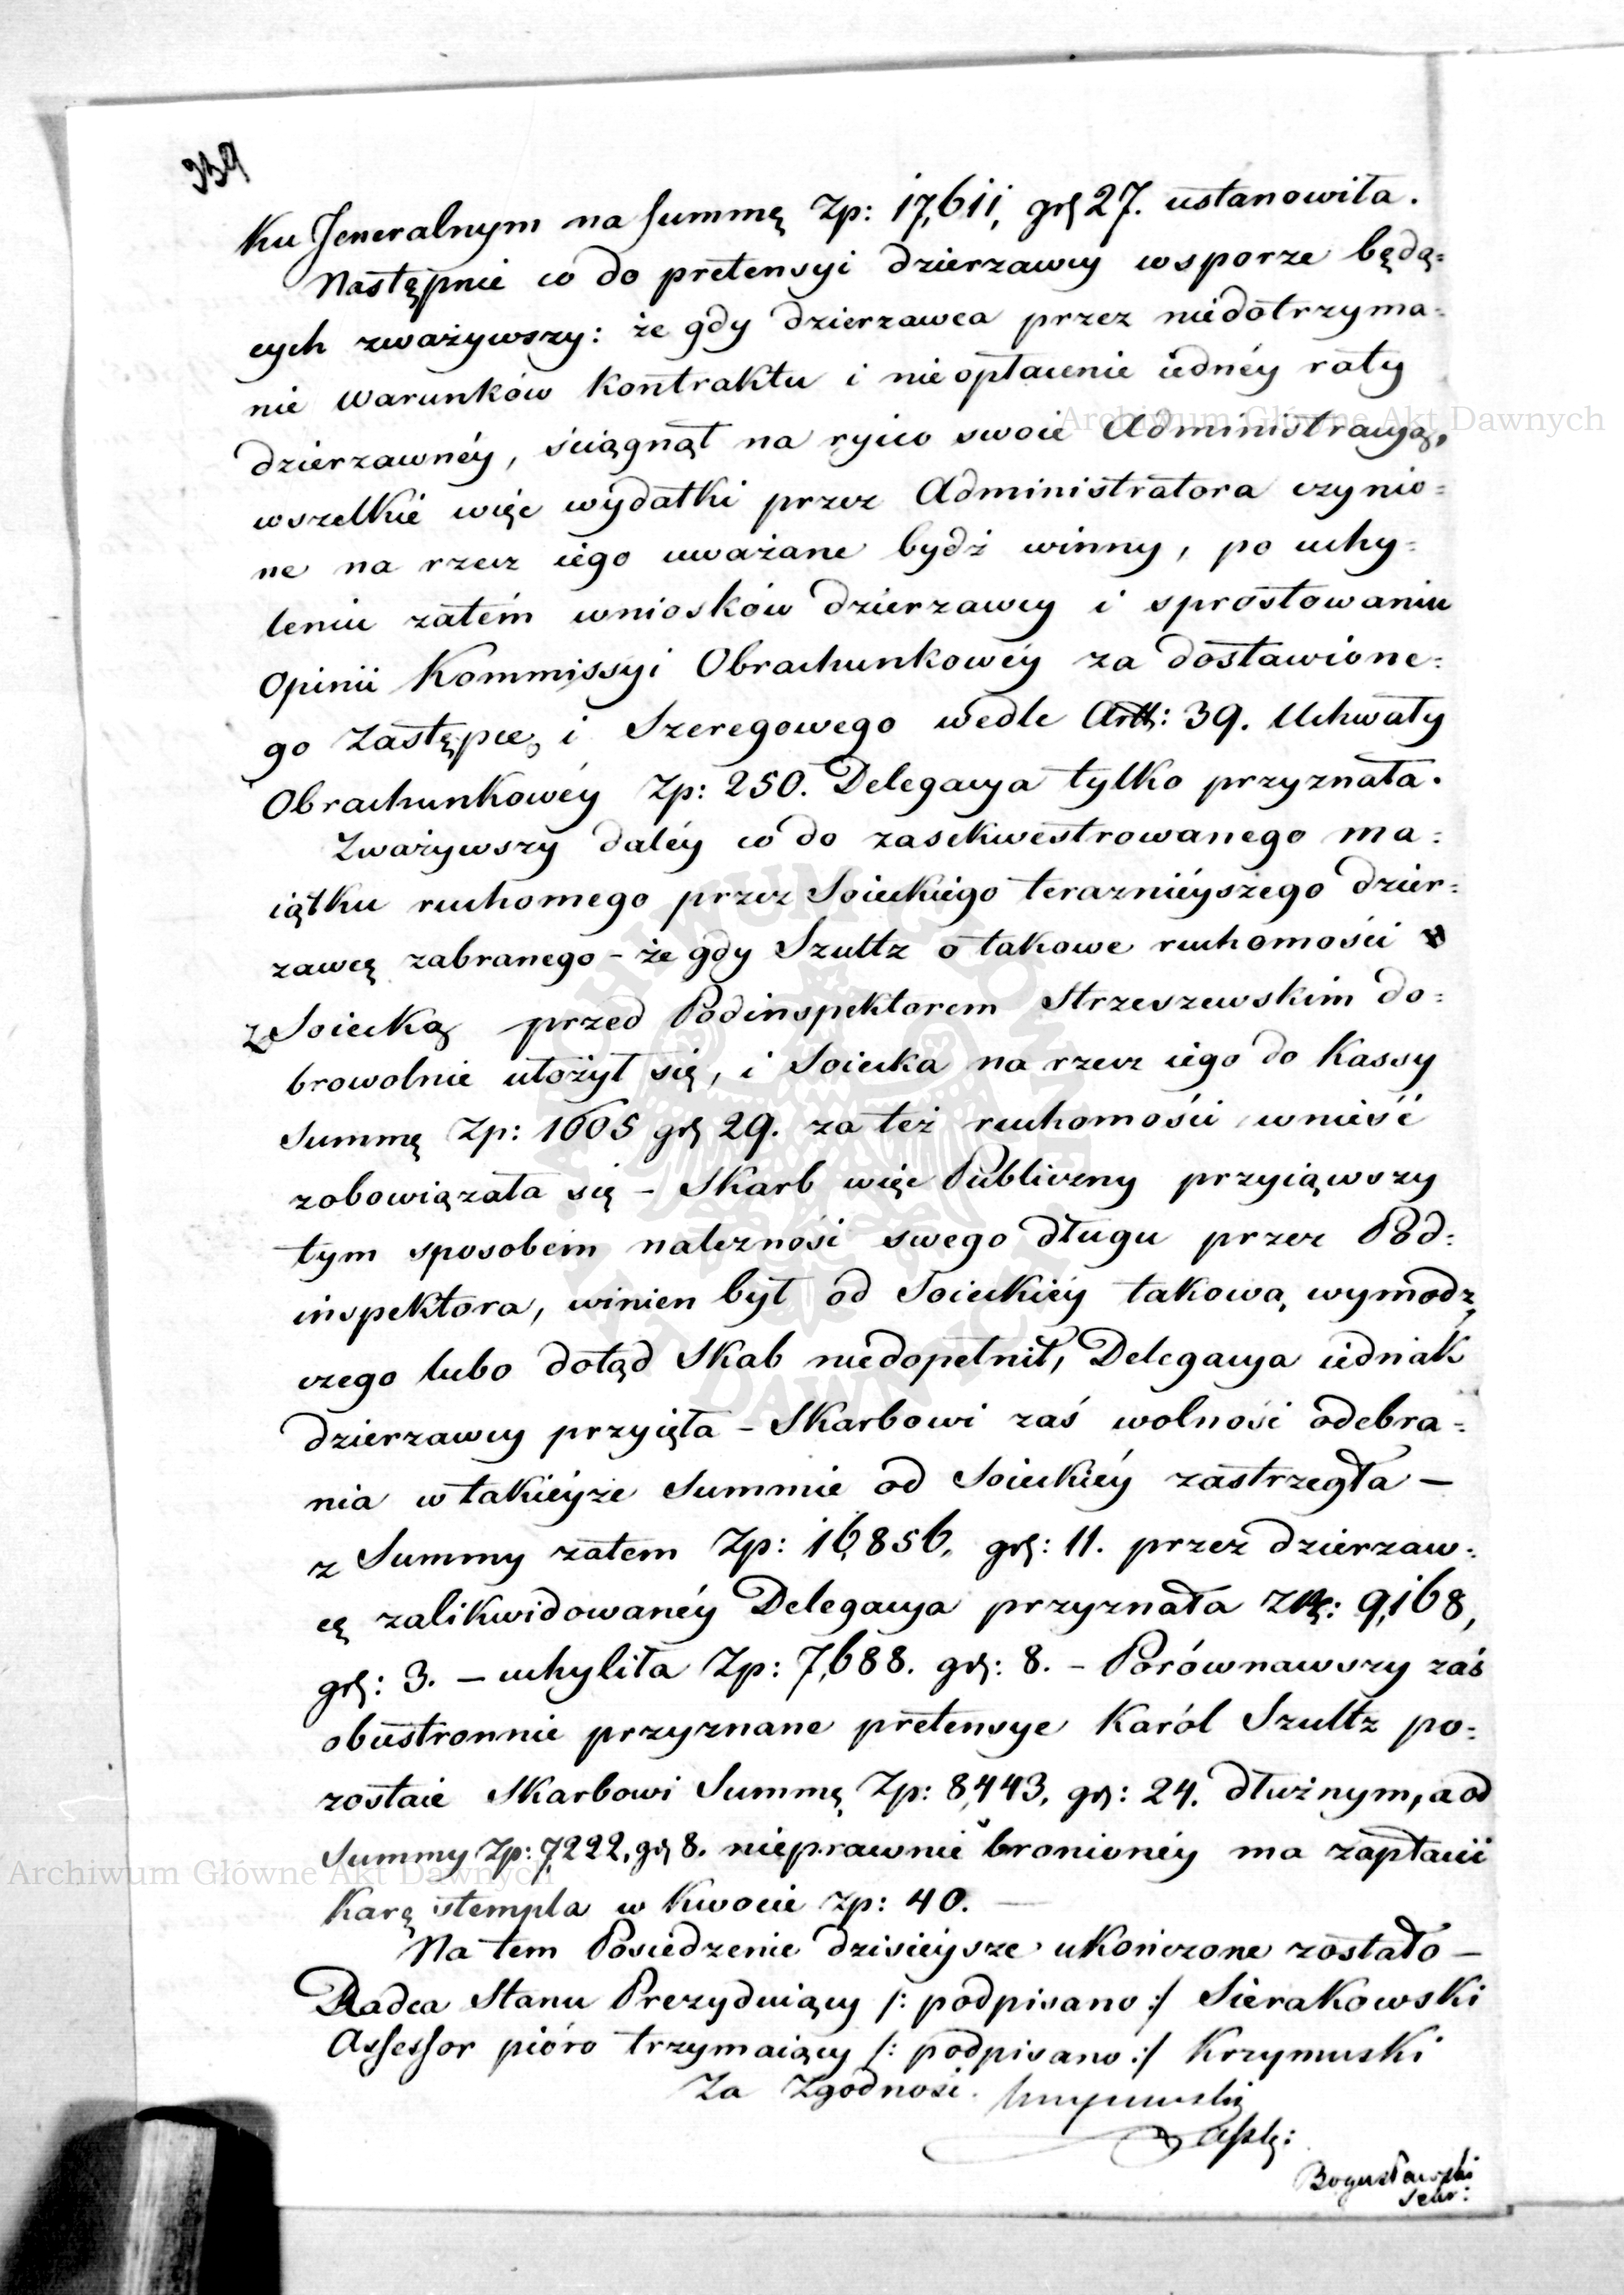 ku Jeneralnym na summę Zp: 17,611, gr 27. ustanowiła.
Następnie co do pretensyi dzierzawcy wsporze będą=
cych zważywszy: że gdy dzierzawca przez niedotrzyma=
nie warunków kontraktu i nieopłacenie iednéy raty
Archiwum Główne Akt Dawnych
dzierzawnéy, ściągnął na ryico swoie Administracyą,
wszelkie więc wydatki przez Administratora czynio=
ne na rzecz iego uważane bydź winny, po uchy=
leniu zatém wniosków dzierzawcy i sprostowaniu
Opinii Kommissyi Obrachunkowéy za dostawione=
go Zastępcę, i Szeregowego wedle Art: 39. Uchwały
Obrachunkowéy Zp: 250. Delegacya tylko przyznała.
Zważywszy daléy co do zasekwestrowanego ma=
iątku ruchomego przez Soieckiego teraznieyszego dzier=
zawcę zabranego - że gdy Szultz o takowe ruchomości
z Soiecką przed Podinspektorem Strzeszewskim do=
browolnie ułożył się, i Soiecka na rzecz iego do Kassy
Summę Zp: 1605 gr 29. za też ruchomości wnieść
zobowiązała się - Skarb więc Publiczny przyiąwszy
tym sposobem należności swego długu przez Pod=
inspektora, winien był od Soieckiéy takową wymodz,
czego lubo dotąd Skab niedopełnił, Delegacya iednak
dzierzawcy przyięła - Skarbowi zaś wolność odebra=
nia w takiéyże Summie od Soieckiéy zastrzegła —
z Summy zatem Zp: 16,856, gr: 11. przez dzierzaw=
cę zalikwidowanéy Delegacya przyznała Zp: 9,168,
gr: 3. — uchyliła Zp: 7,688. gr: 8. - Porównawszy zaś
obustronnie przyznane pretensye Karól Szultz po=
zostaie Skarbowi Summę Zp: 8,443, gr: 24. dłużnym, a od
Summy Zp: 7222, gr 8. nieprawnie bronionéy ma zapłacić
Archiwum Główne Akt Dawnych
Karę stempla w kwocie Zp: 40. —
Na tem Posiedzenie dzisieysze ukończone zostało —
Radca Stanu Prezyduiący /: podpisano :/ Sierakowski
Assessor pióro trzymaiący /: podpisano :/ Krzymuski
Za Zgodność. Krzymuski
Bogusławski
Sekr: